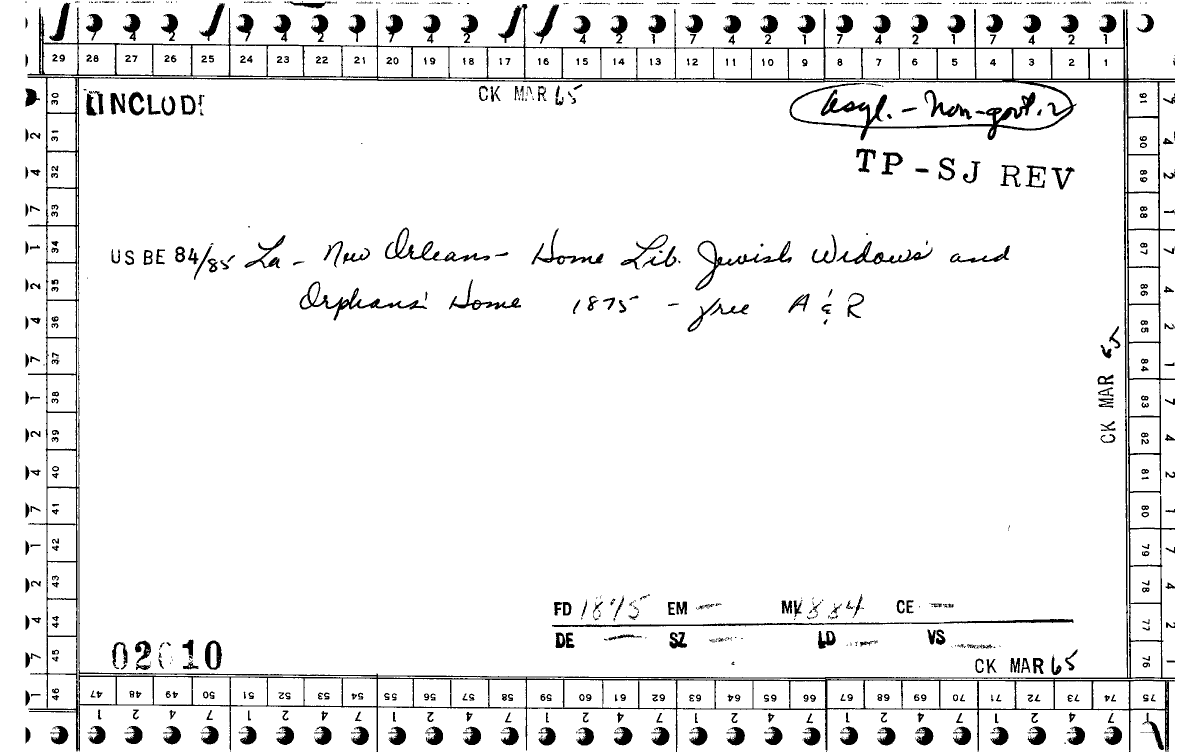 7 4 2 1 7 4 2 1 7 4 2 1 7 4 2 1 7 4 2 1 7 4 2 1 7 4 2 1
29 28 27 26 25 24 23 22 21 20 19 18 17 16 15 14 13 12 11 10 9 8 7 6 5 4 3 2 1
INCLUDE
CK MAR 65
Asyl. - Non-govt.
TP-SJ REV
US BE 84/85 La - New Orleans - Home Lib. Jewish Widows' and
Orphans' Home 1875 - free A & R
CK MAR 65
FD 1875 EM — MV 1884 CE —
DE — SZ — LD — VS —
02610
CK MAR 65
30 31 32 33 34 35 36 37 38 39 40 41 42 43 44 45 46
91 90 89 88 87 86 85 84 83 82 81 80 79 78 77 76 75
47 48 49 50 51 52 53 54 55 56 57 58 59 60 61 62 63 64 65 66 67 68 69 70 71 72 73 74
1 2 4 7 1 2 4 7 1 2 4 7 1 2 4 7 1 2 4 7 1 2 4 7 1 2 4 7